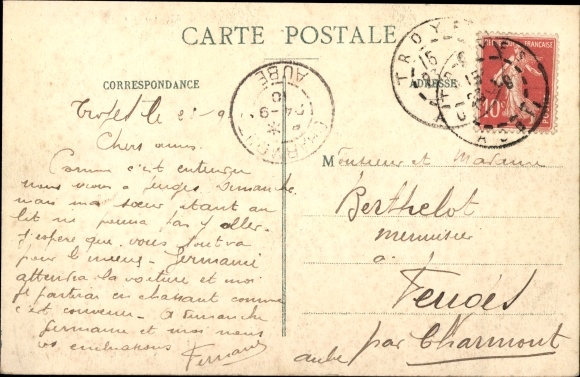 CARTE POSTALE
CORRESPONDANCE
ADRESSE
TROYES
AUBE
RÉPUBLIQUE FRANÇAISE
10c
CHARMONT
AUBE
Troyes le
Chers amis.
Comme c'est entendu
nous irons à Feuges Dimanche.
mais ma sœur étant au
lit ne pourra pas y aller.
J'espère que vous tout va
pour le mieux. Germaine
attendra la voiture et moi
je partirai en chassant comme
c'est convenu. A Dimanche
Germaine et moi nous
vous embrassons Fernand
Monsieur et Madame
Berthelot
menuisier
à
Feuges
par Charmont
Aube